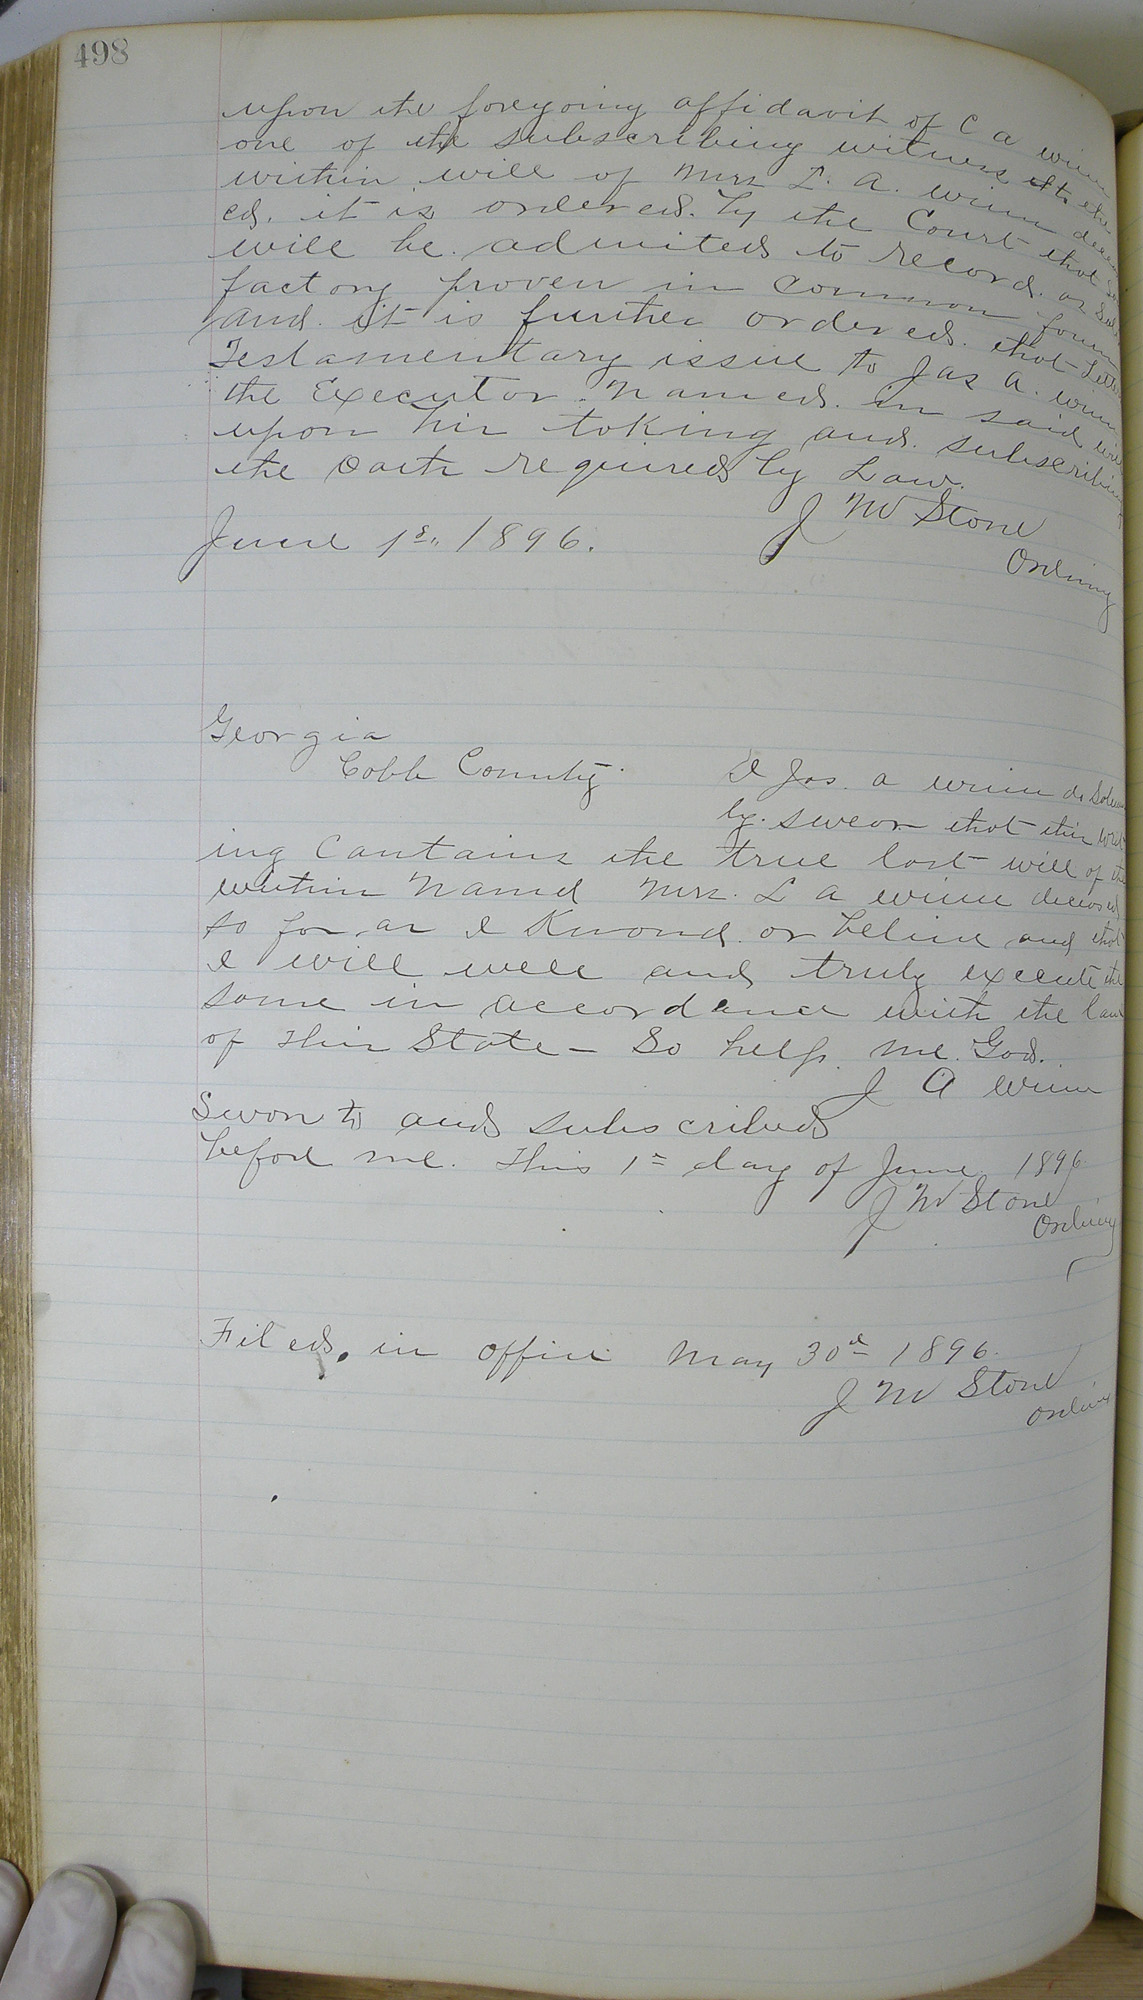 498
upon the foregoing affidavit of C A Winn
one of the subscribing witness to the
within will of Mrs L. A. Winn deceas
ed. it is ordered. by the Court that
will be admited to record. as
factory proven in Common form
and it is further ordered. that Letters
Testamentary issue to Jas A. Winn
the Executor Named. in said will
upon his taking and subscribing
the Oath required by Law.
J M Stone
June 1st 1896.
Ordinary
Georgia
Cobb County. I Jas. A Winn do Solemn
ly. swear that this writ
ing Contains the true last will of the
within Named Mrs. L A Winn deceased
so far as I Knowd or believe and that
I will well and truly execute the
same in accordance with the law
of this State – So help me God.
J A Winn
Swon to and subscribed
before me. This 1st day of June 1896
J M Stone
Ordinary
Filed, in office May 30d 1896.
J M Stone
Ordinary